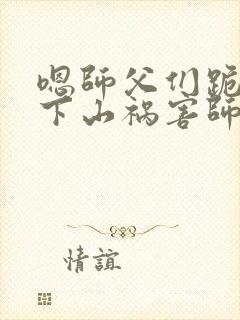 嗯師父们跪
下山祸害師
情誼